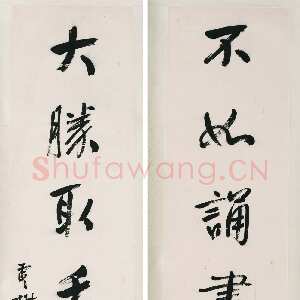 不如誦書
大勝取
Shufawang.CN